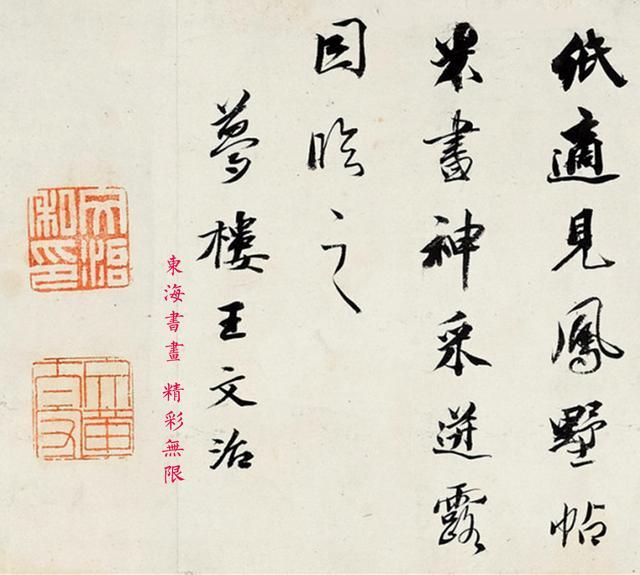 紙適見鳳墅帖
米書神采迸露
因臨之
夢樓王文治
東海書畫 精彩無限
文治私印